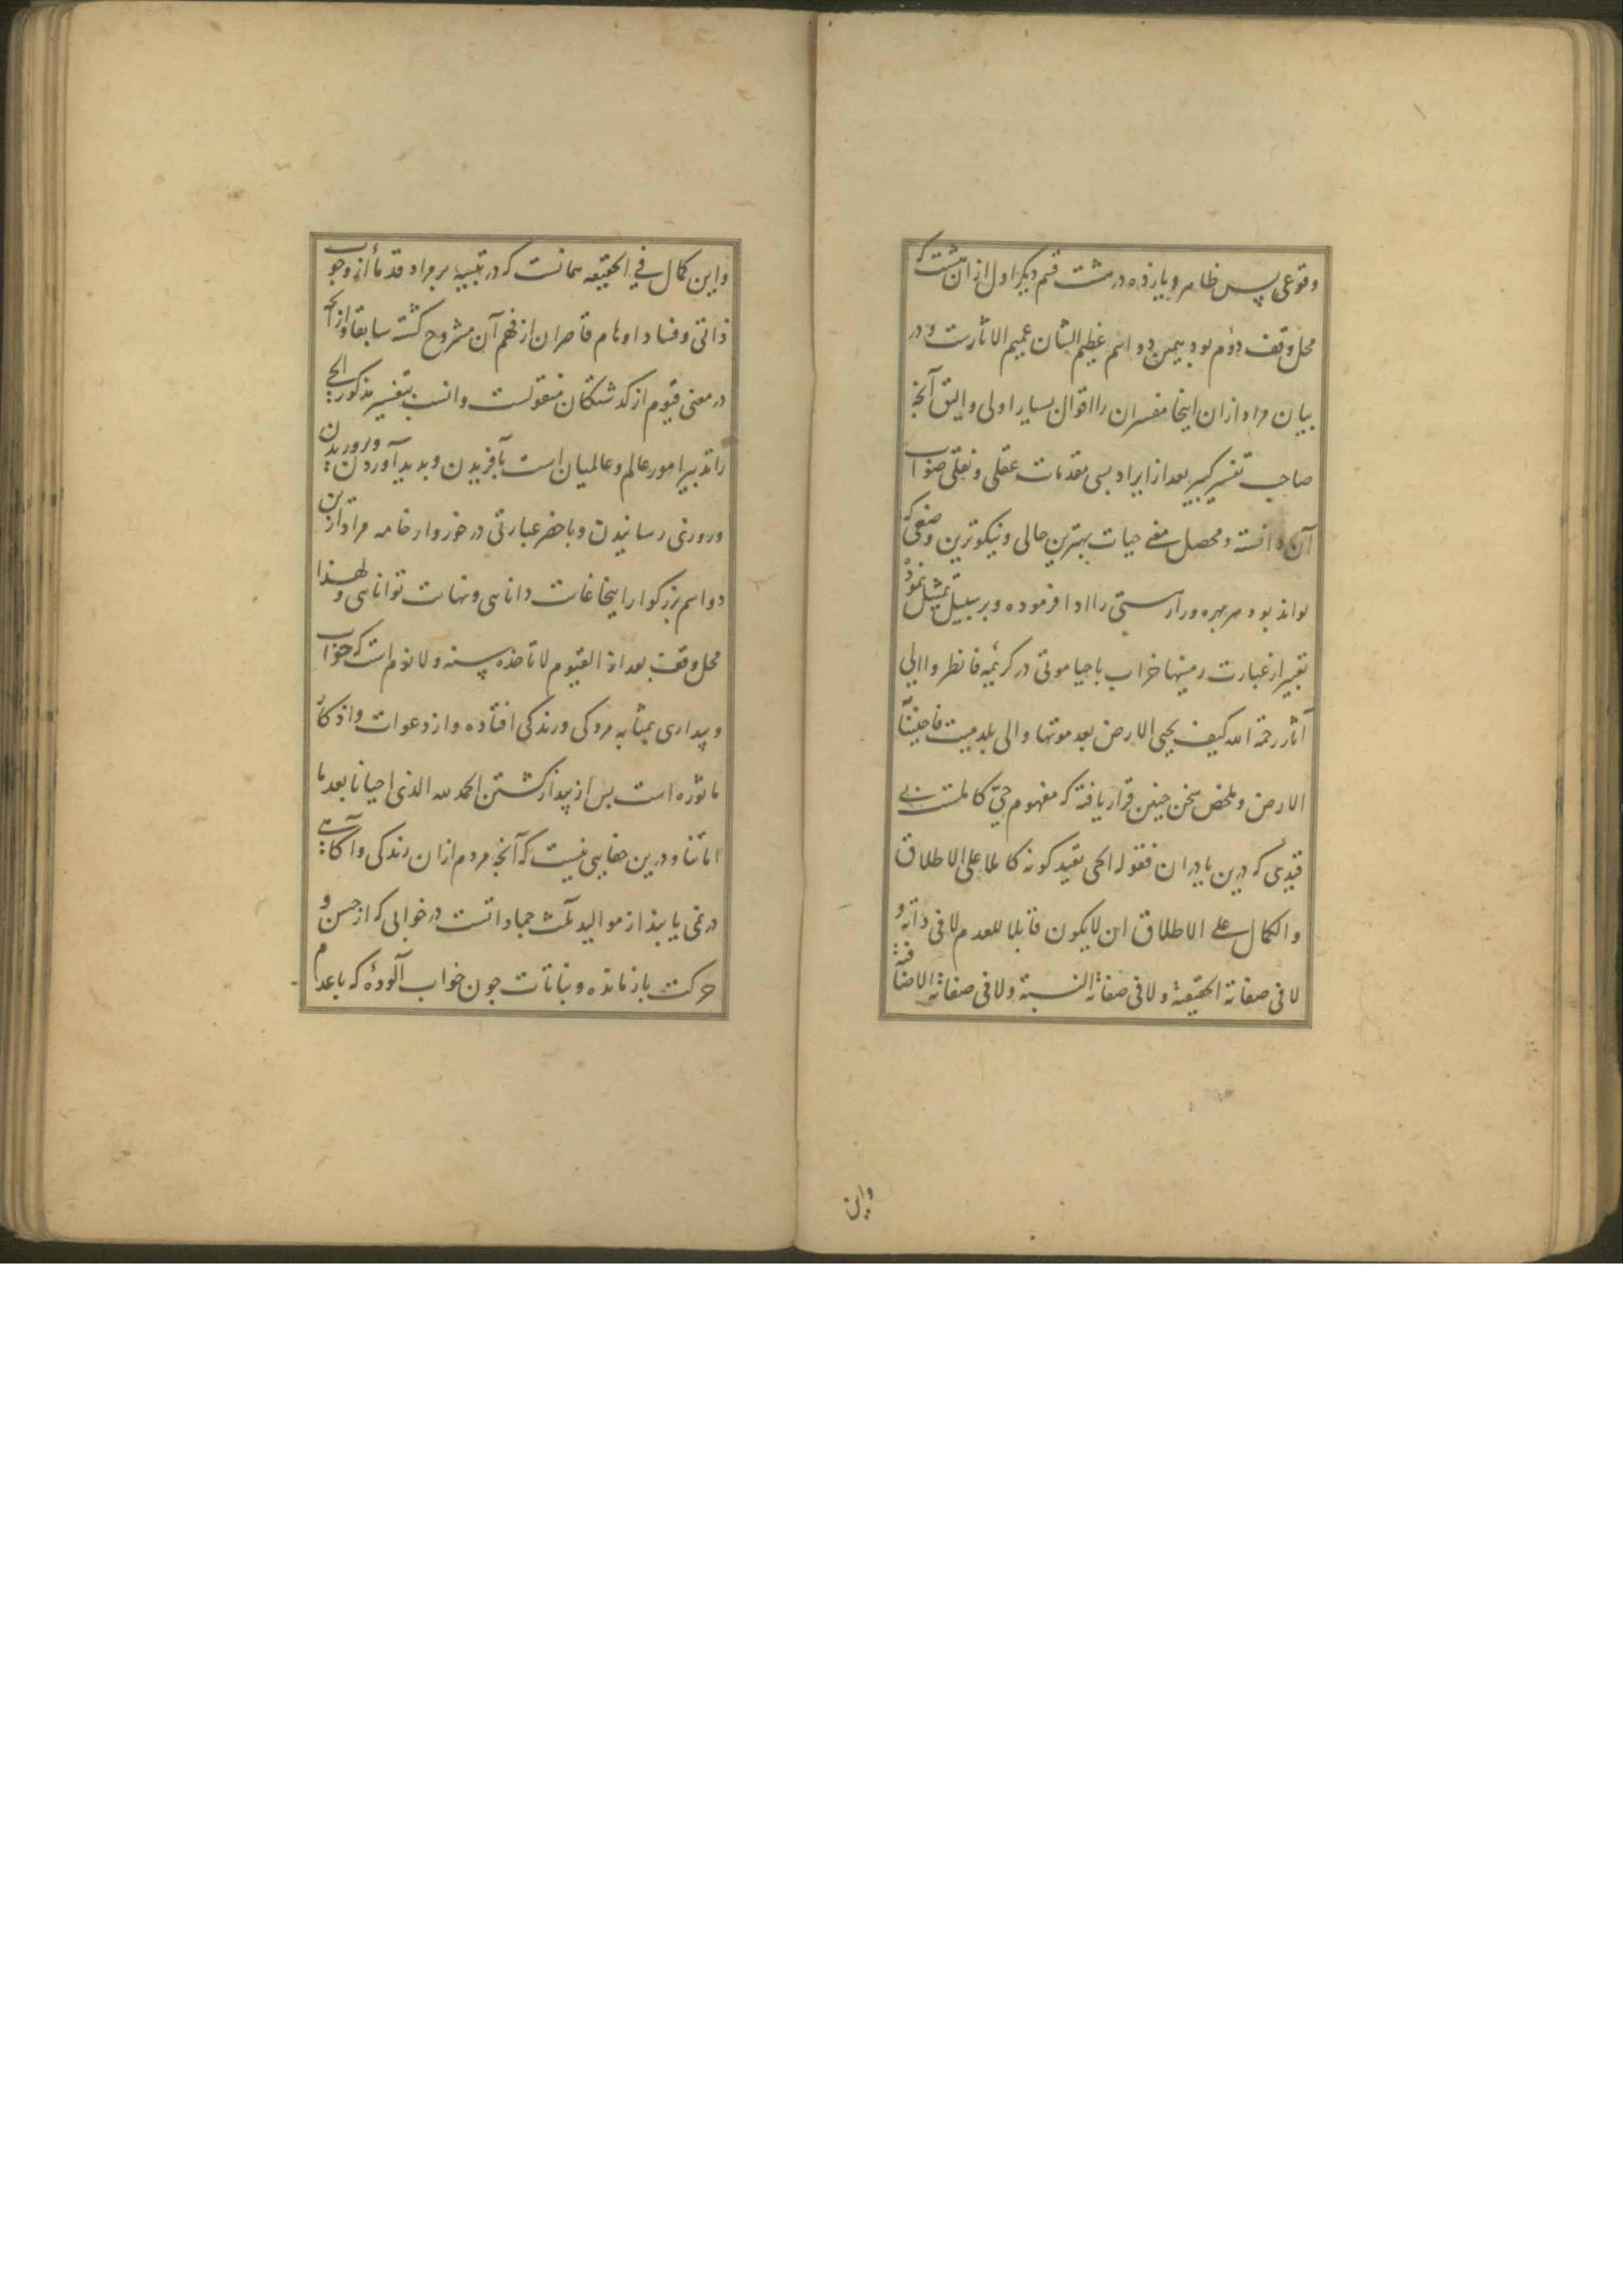 وقوعی پس ظاهر و یازده در هشت قسم دیگر اول ازان هشت که
محل وقف دؤم بود همین دو اسم عظیم الشان عمیم الاثارست و در
بیان مراد ازان اینجا مفسران را اقوال بسیار اولی و الیق آنچه
صاحب تفسیر کبیر بعد از ایراد بسی مقدمات عقلی و نقلی صواب
آن دانسته و محصل معنی حیات بهترین حالی و نیکوترین وصفی که
تواند بود هر بهره ور از هستی را ادا فرموده و بر سبیل تمثیل نمود
تعبیر از عمارت زمینها خراب باحیا موتی در کریمه فانظر وا الی
آثار رحمة الله کیف یحیی الارض بعد موتها و الی بلد میت فاحیینا به
الارض و ملخص سخن چنین قرار یافته که مفهوم حی کاملست بی
قیدی که درین یا دران فقوله الحی یفید کونه کاملا علی الاطلاق
والکمال علی الاطلاق ان لا یکون قابلا للعدم لا فی ذاته و
لا فی صفاته الحقیقة و لا فی صفاته النسبة و لا فی صفاته الاضافة
واین
و این کمال فی الحقیقه همانست که در تنبیه بر مراد قدما از وجوب
ذاتی و فساد اوهام قاصران از فهم آن مشروح گشته سابقا و از آنچه
در معنی قیوم از کدشتکان منقولست و انسب بتفسیر مذکور الحی
را تدبیر امور عالم و عالمیان است بآفریدن و پدید آوردن و پروریدن
و روزی رسانیدن و باخصر عبارتی در خور وار خامه مراد ازین
دو اسم بزرکوار اینجا غایت دانایی و نهایت توانایی و لهذا
محل وقف بعد از القیوم لا تاخذه سنه و لا نوم است که خواب
و بیداری بمثابه مردکی و زندکی افتاده و از دعوات و اذکار
ماثوره است پس از بیدار کشتن الحمد لله الذی احیانا بعد ما
اماتنا و درین خفایی نیست که آنچه مردم ازان زندکی و آکاهی
در نمی یابند از موالید ثلث جماداتست در خوابی که از حس و
حرکت بازمانده و نباتات چون خواب آلودهٔ که با عدم